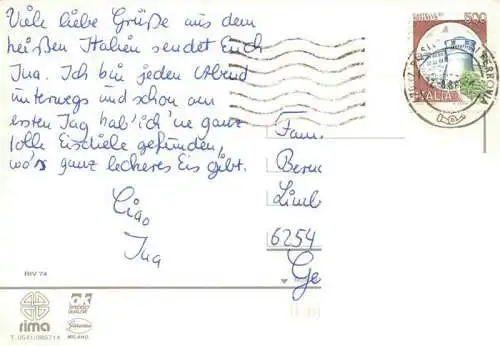 Viele liebe Grüße aus dem
heißen Italien sendet Euch
Ina. Ich bin jeden Abend
unterwegs und schon am
ersten Tag hab' ich 'ne ganz
tolle Eisdiele gefunden,
wo's ganz leckeres Eis gibt.
Ciao
Ina
Fam.
Bern
Limb
6254
Ge
500
ITALIA
RIV 74
rima
T. 0541/985714
MILANO